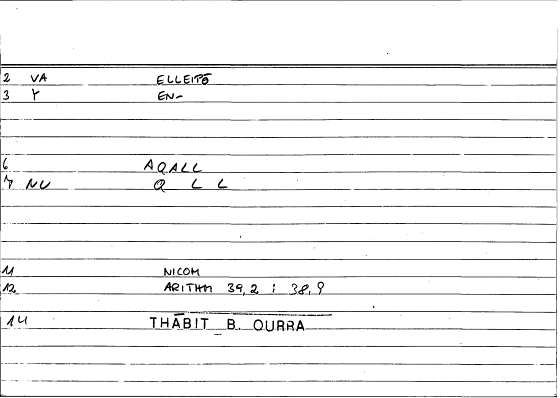 2 VA ELLEITŌ
3 Y EN-
6 AQALL
7 NU Q L L
11 NICOM
12 ARITHM 39,2 ; 38,9
14 THĀBIT B. QURRA